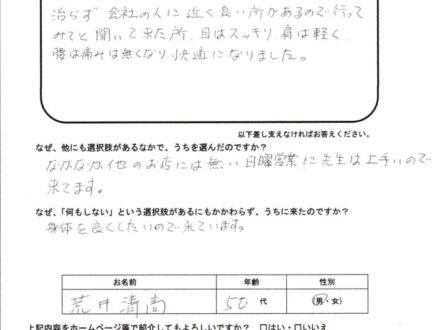 治らず、会社の人に近く良い所があるので行って
みてと聞いて来た所、目はスッキリ、肩は軽く、
腰は痛みは無くなり快適になりました。
以下差し支えなければお答えください。
なぜ、他にも選択肢があるなかで、うちを選んだのですか？
なかなか他のお店には無い日曜営業に先生は上手いので
来てます。
なぜ、「何もしない」という選択肢があるにもかかわらず、うちに来たのですか？
身体を良くしたいので来ています。
お名前 年齢 性別
荒井清高 50代 (男・女)
上記内容をホームページ等で紹介してもよろしいですか？ □はい・□いいえ